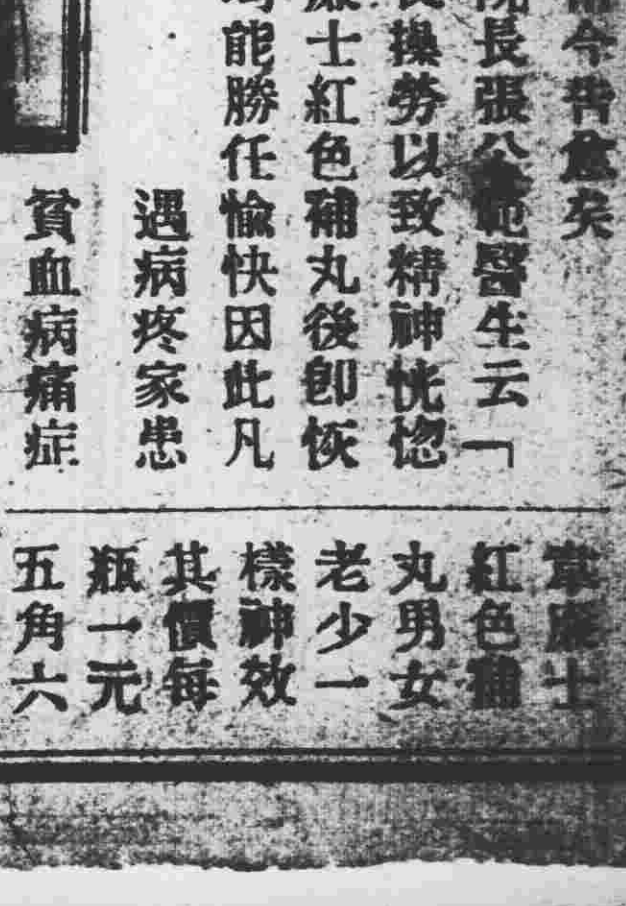 今告愈矣
長張公範醫生云「
操勞以致精神恍惚
士紅色補丸後卽恢
能勝任愉快因此凡
遇病疼家患
貧血病痛症
韋廉士
紅色補
丸男女
老少一
樣神效
其價每
瓶一元
五角六